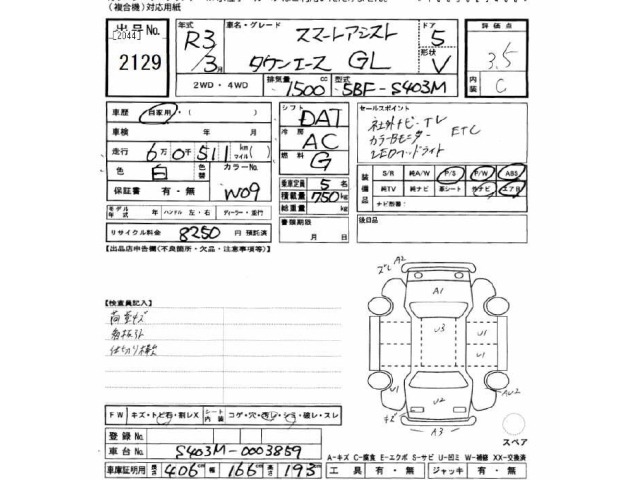 (複合機)対応用紙
出品No. [2044] 2129
年式 R3/3月
車名・グレード スマートアシスト
タウンエース GL
ドア 5
形状 V
評価点 3.5
内装 C
2WD・4WD
排気量 1500cc
型式 5BF-S403M
車歴 自家用・( )
車検 年 月
走行 6万0千511 km(マイル)
色 白 色替 カラーNo. W09
保証書 有・無
モデル年式 年 ハンドル 左・右 ディーラー・並行
リサイクル料金 8250円 預託済
シフト DAT
冷房 AC
燃料 G
乗車定員 5名
積載量 750kg
総重量 kg
書類期限
月 日
セールスポイント
社外ナビ-TV ETC
カラーBモニター
LEDヘッドライト
装備品 S/R 純A/W P/S P/W ABS
純TV 純ナビ 革シート 外ナビ エアB
ナビ形番:
後日品
【出品店申告欄(不良箇所・欠品・注意事項等)】
【検査員記入】
荷室キズ
看板跡
仕切り棒欠
ズレ A2
A1
U3 U1
U1
U2 AU2
キズ A3
スペア
FW キズ・トビ石・割レX
シート内装 コゲ・穴・キレ・シミ・破レ・スレ
登録No.
車台No. S403M-0003859
車庫証明用 長さ 406cm 幅 166cm 高さ 193cm
A-キズ C-腐食 E-エクボ S-サビ U-凹ミ W-補修 XX-交換済
工具 有・無 ジャッキ 有・無